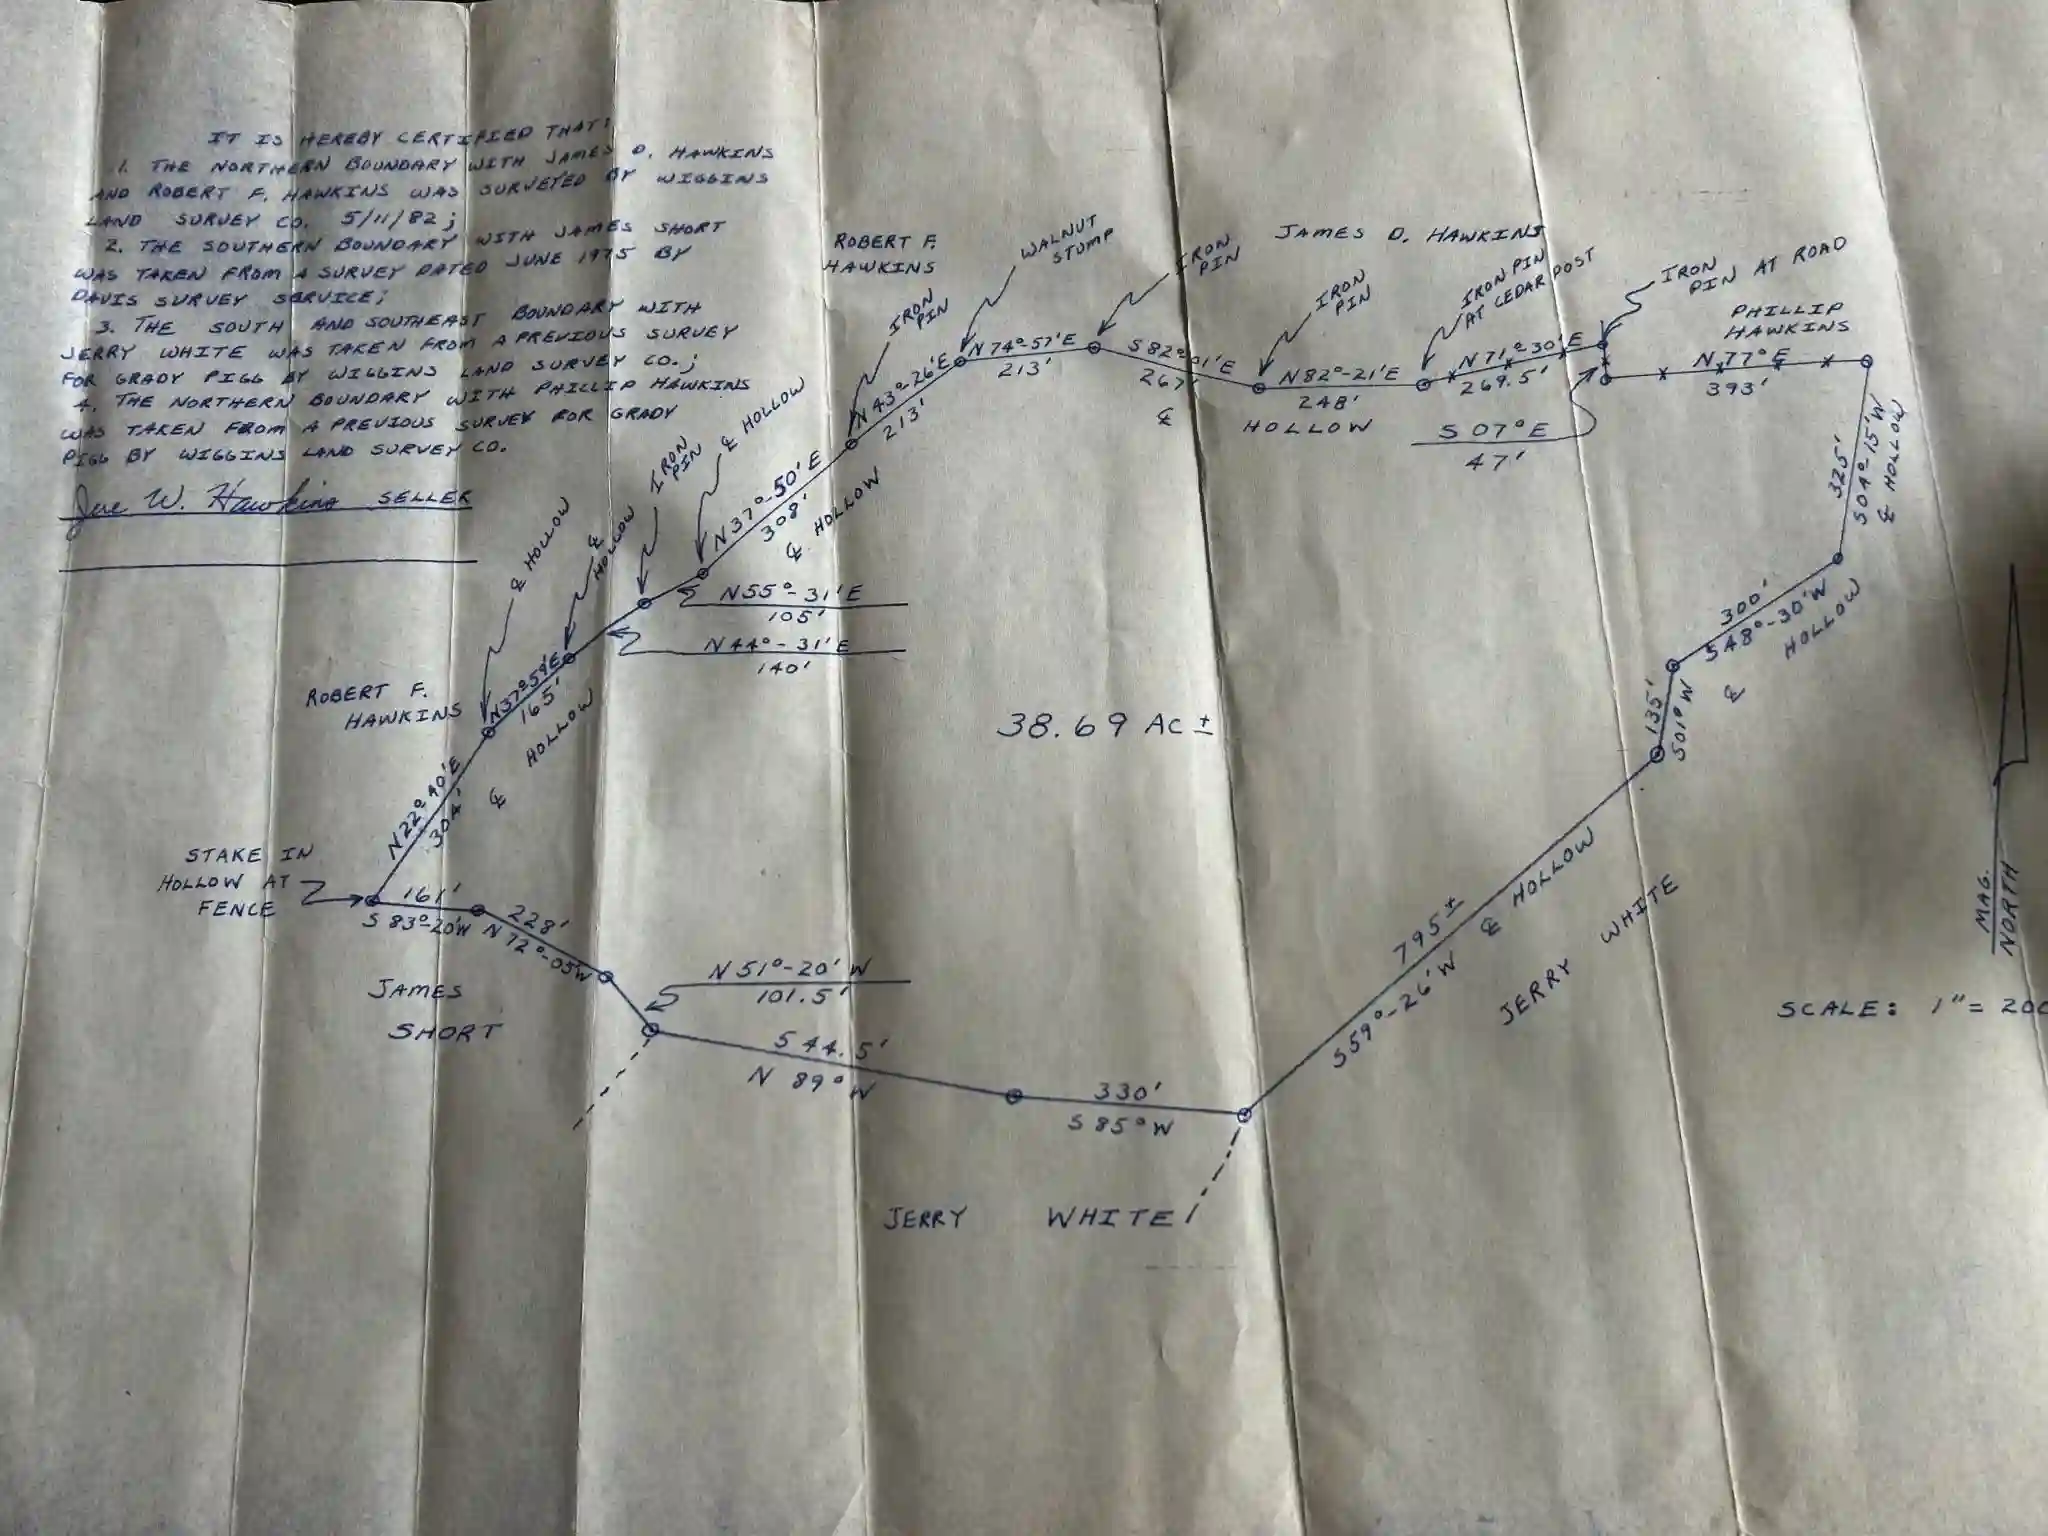 IT IS HEREBY CERTIFIED THAT:
1. THE NORTHERN BOUNDARY WITH JAMES D. HAWKINS
AND ROBERT F. HAWKINS WAS SURVEYED BY WIGGINS
LAND SURVEY CO. 5/11/82;
2. THE SOUTHERN BOUNDARY WITH JAMES SHORT
WAS TAKEN FROM A SURVEY DATED JUNE 1975 BY
DAVIS SURVEY SERVICE;
3. THE SOUTH AND SOUTHEAST BOUNDARY WITH
JERRY WHITE WAS TAKEN FROM A PREVIOUS SURVEY
FOR GRADY PIGG BY WIGGINS LAND SURVEY CO.;
4. THE NORTHERN BOUNDARY WITH PHILLIP HAWKINS
WAS TAKEN FROM A PREVIOUS SURVEY FOR GRADY
PIGG BY WIGGINS LAND SURVEY CO.
Joe W. Hawkins SELLER
ROBERT F.
HAWKINS
IRON
PIN
WALNUT
STUMP
IRON
PIN
JAMES D. HAWKINS
IRON
PIN
IRON PIN
AT CEDAR POST
IRON
PIN AT ROAD
PHILLIP
HAWKINS
N 43°-26'E
213'
N 74°-57'E
213'
S 82°-01'E
267'
N 82°-21'E
248'
N 71°-30'E
269.5'
N 77° E
393'
℄ HOLLOW
S 07° E
47'
325'
S 04°-15' W
℄ HOLLOW
℄ HOLLOW
℄ HOLLOW
IRON
PIN
℄ HOLLOW
N 37°-50' E
308'
℄ HOLLOW
N 55°-31' E
105'
N 44°-31' E
140'
300'
S 48°-30' W
℄ HOLLOW
135'
S 01° W
ROBERT F.
HAWKINS
N 37°59'E
165'
℄ HOLLOW
38.69 AC ±
N 22°40'E
304'
STAKE IN
HOLLOW AT
FENCE
161'
S 83°-20'W
228'
N 72°-05'W
795 ±
S 59°-26' W
℄ HOLLOW
JERRY WHITE
MAG.
NORTH
JAMES
SHORT
N 51°-20' W
101.5'
544.5'
N 89° W
330'
S 85° W
SCALE: 1" = 200
JERRY WHITE